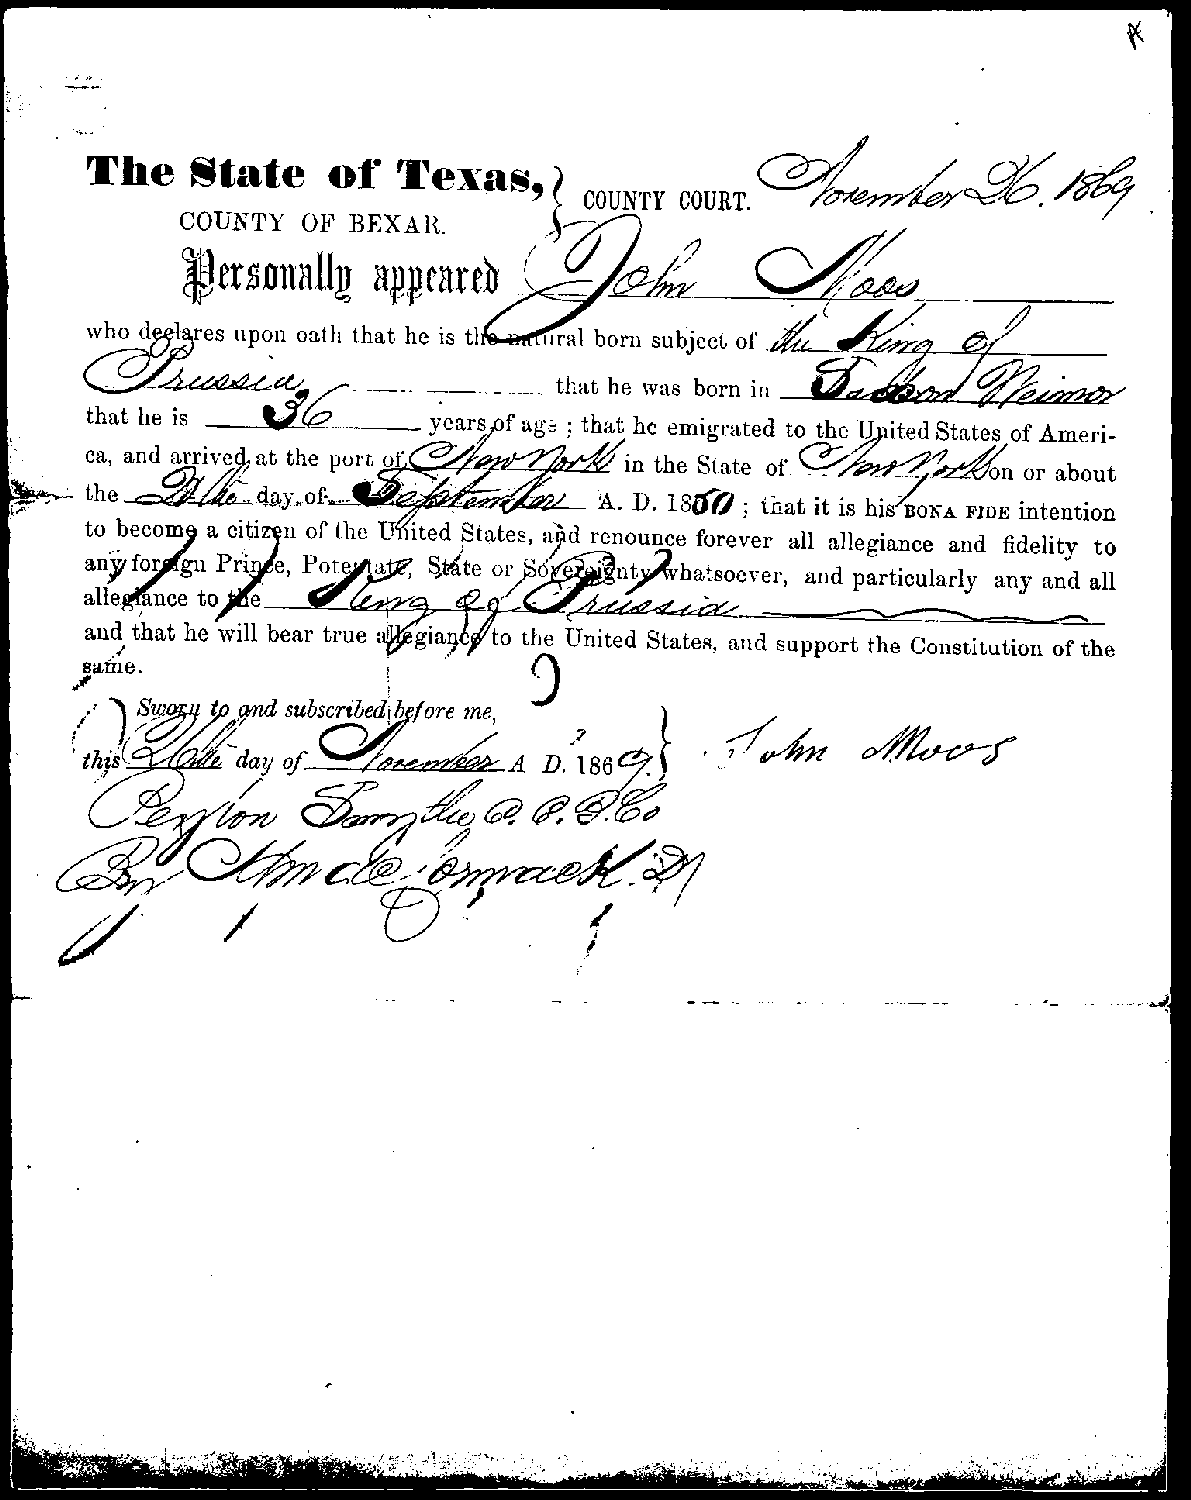 The State of Texas, } COUNTY COURT. November 26. 1869
COUNTY OF BEXAR.
Personally appeared John Moos
who declares upon oath that he is the natural born subject of the King of
Prussia that he was born in Weimar
that he is 36 years of age ; that he emigrated to the United States of Ameri-
ca, and arrived at the port of New York in the State of New York on or about
the day of September A. D. 1850 ; that it is his BONA FIDE intention
to become a citizen of the United States, and renounce forever all allegiance and fidelity to
any foreign Prince, Potentate, State or Sovereignty whatsoever, and particularly any and all
allegiance to the King of Prussia
and that he will bear true allegiance to the United States, and support the Constitution of the
same.
Sworn to and subscribed before me,
this 26th day of November A D. 1869. } John Moos
Peyton Smythe C. C. B. Co
By